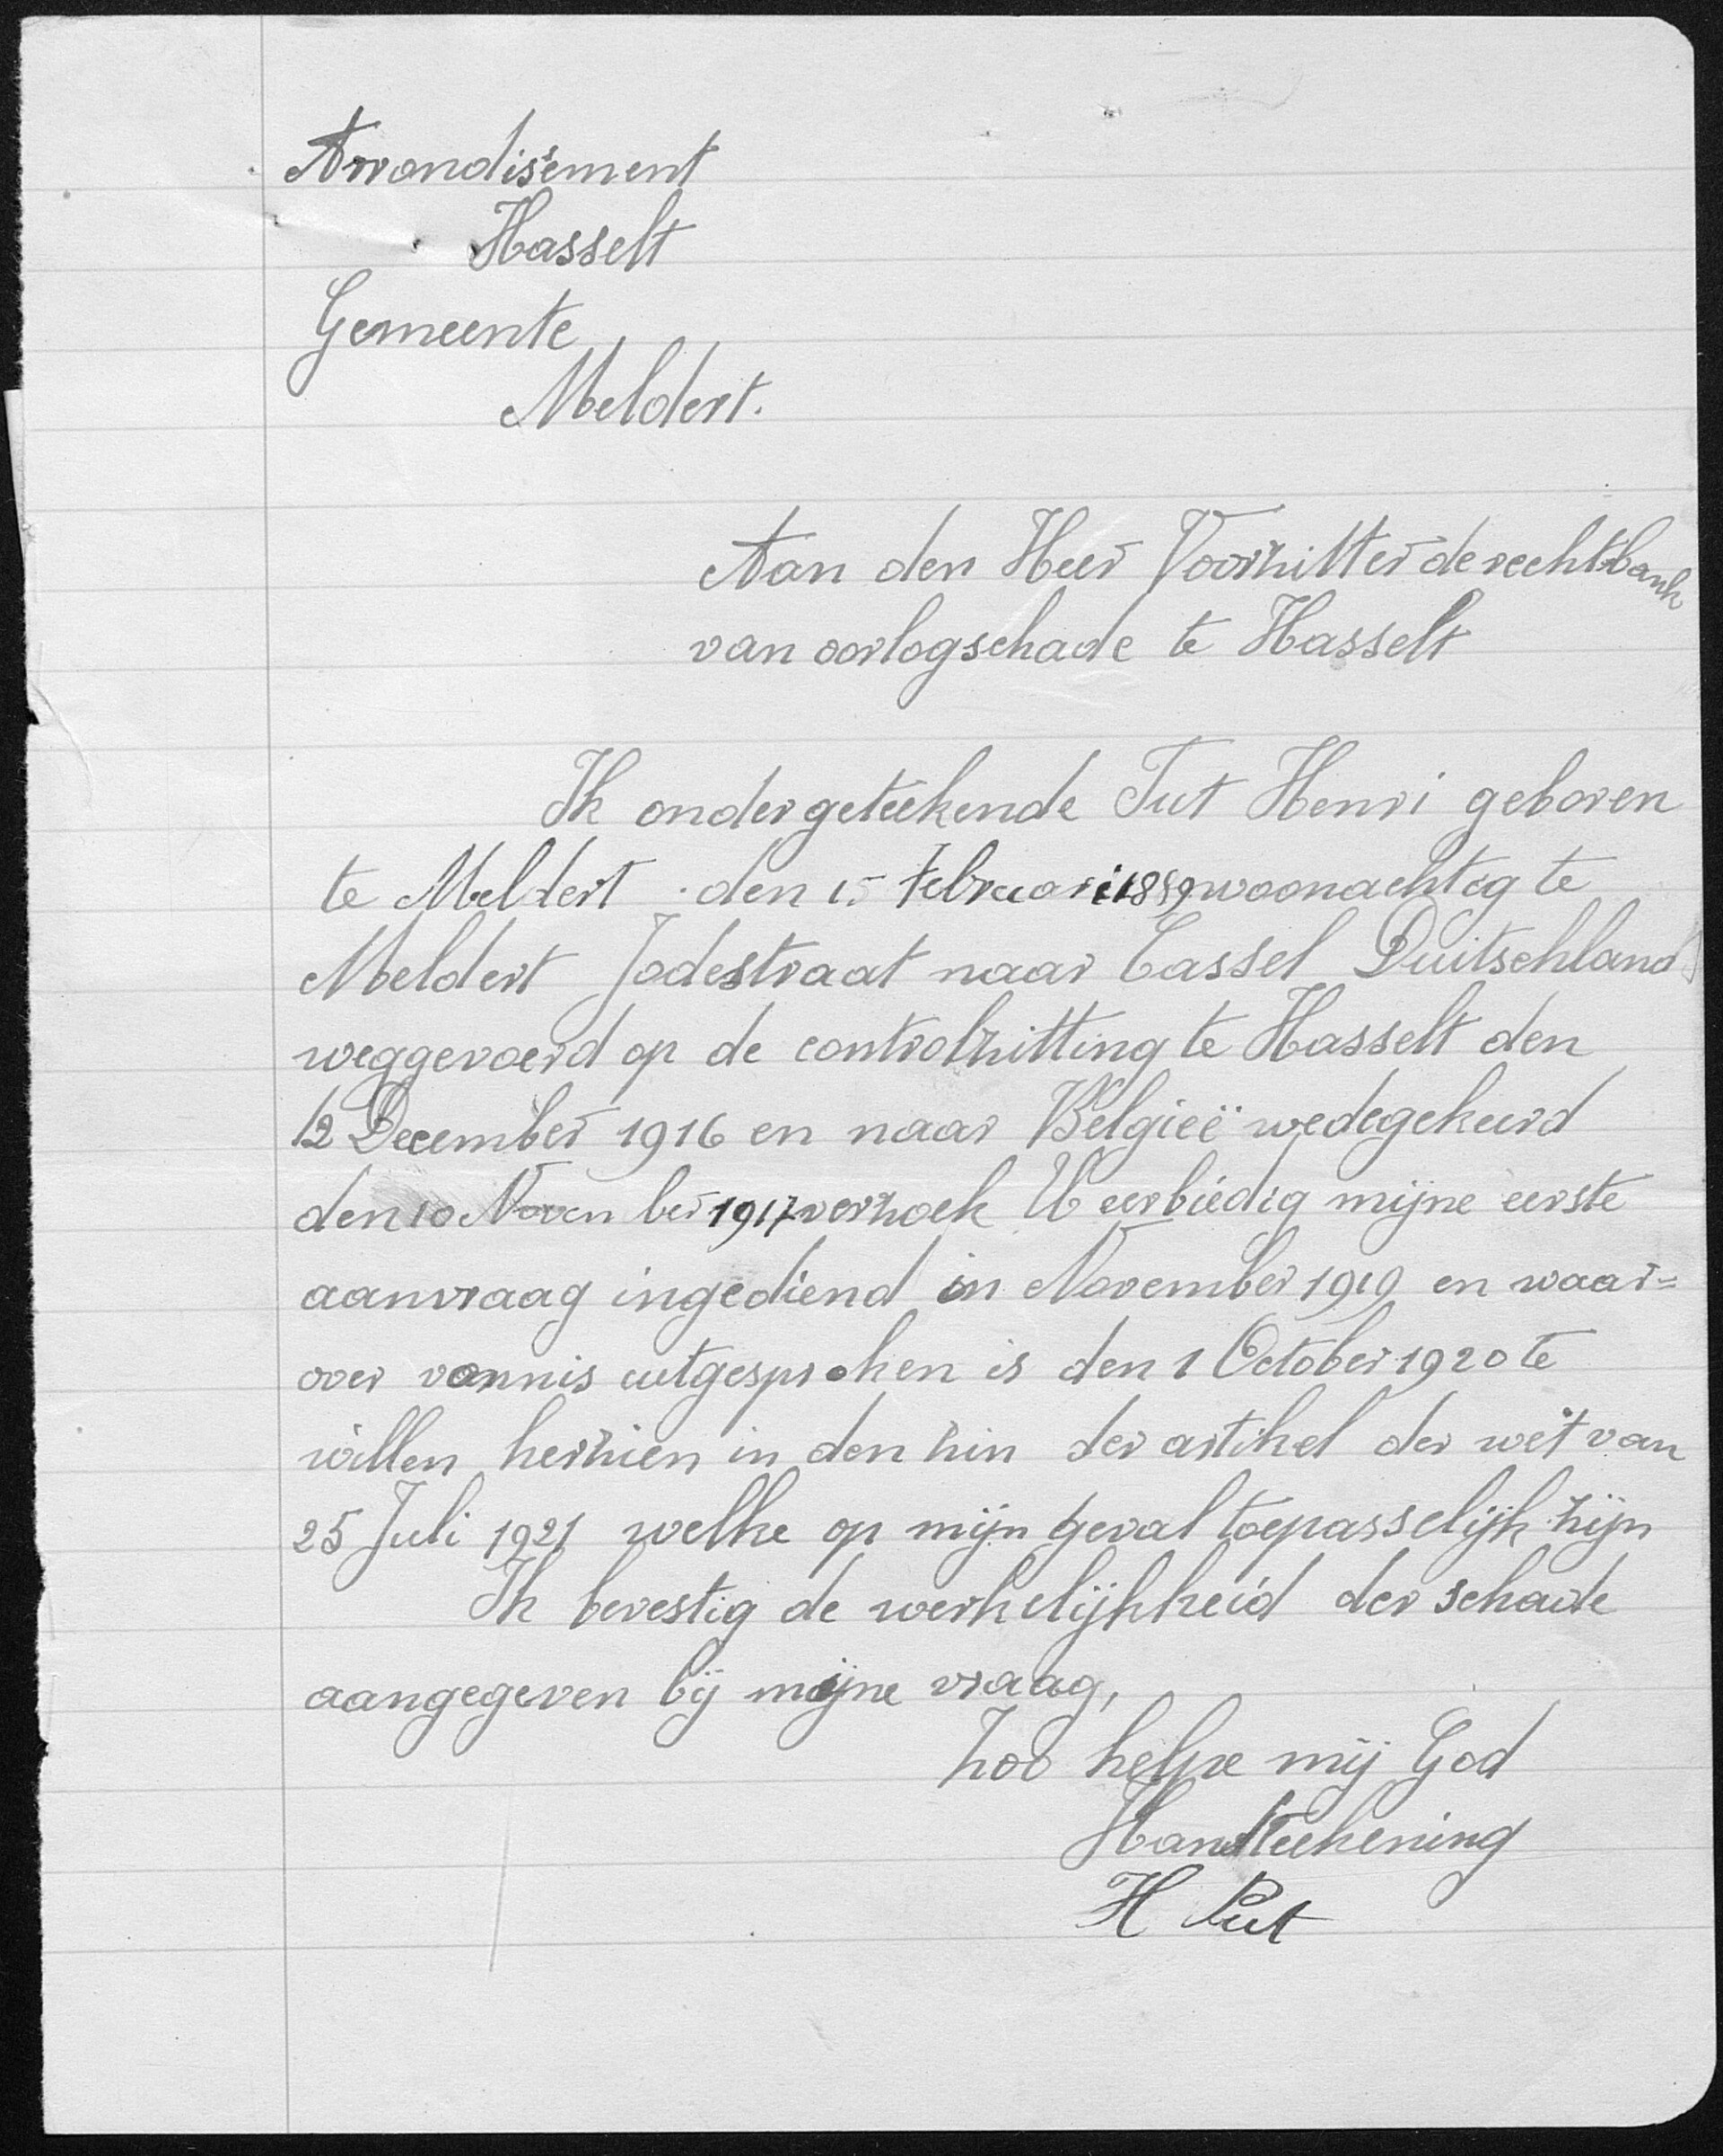 Arrondisement
Hasselt
Gemeente
Meldert.
Aan den Heer Voorzitter de rechtsbank
van oorlogschade te Hasselt
Ik ondergeteekende Put Henri geboren
te Meldert den 15 Februari 1889 woonachtig te
Meldert Jodestraat naar Cassel Duitschland
weggevoerd op de controlzitting te Hasselt den
12 December 1916 en naar Belgieë wedegekeerd
den 10 November 1917 verzoek U eerbiedig mijne eerste
aanvraag ingediend in November 1919 en waar=
over vonnis uitgesproken is den 1 October 1920 te
willen herzien in den zin der artikel der wet van
25 Juli 1921 welke op mijn geval toepasselijk zijn
Ik bevestig de werkelijkheid der schade
aangegeven bij mijne vraag,
Zoo helpe mij God
Handteekening
H Put